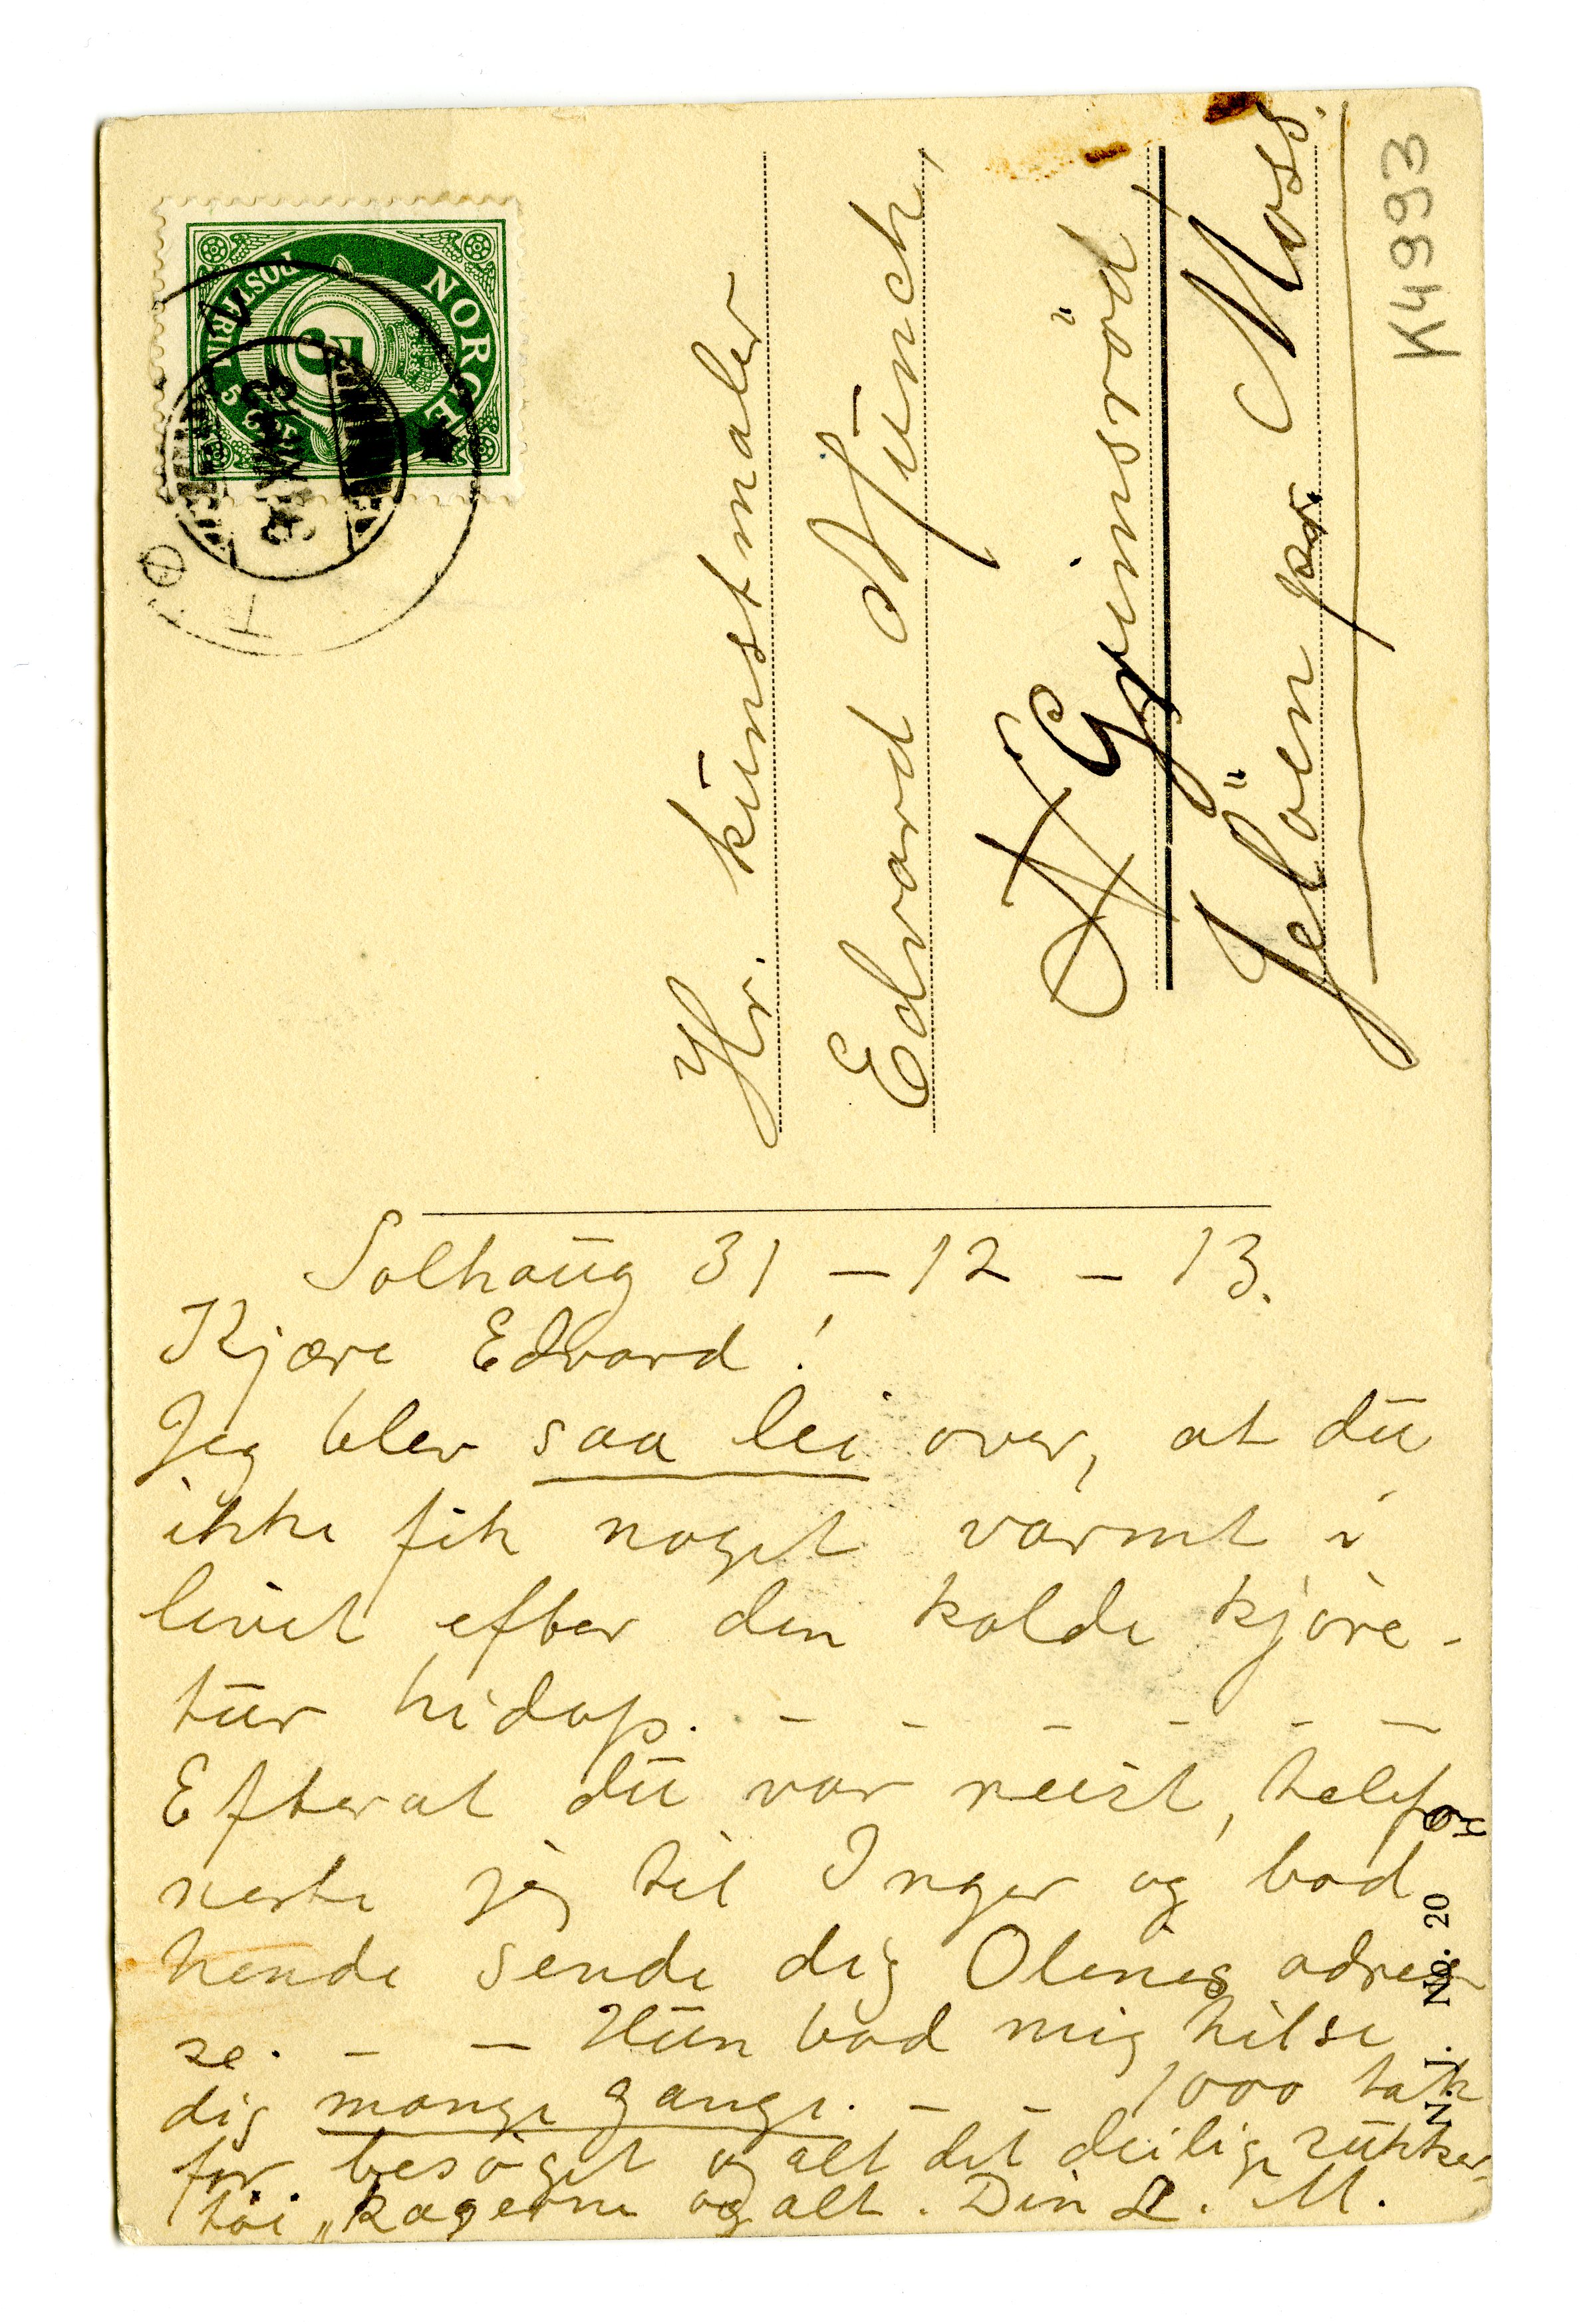 K4993
NORGE
POSTFRIM
5
5
31 XII 13
Hr. kunstmaler
Edvard Munch,
Grimsröd,
Jelöen pr. Moss.
Solhaug 31 – 12 – 13.
Kjære Edvard!
Jeg blev saa lei over, at du
ikke fik noget varmt i
livet efter den kolde kjøre-
tur hidop. – – – – – –
Efterat du var reist, telefo
nerte jeg til Inger og bad
hende sende dig Olines adres
se. – – Hun bad mig hilse
dig mange gange. – – 1000 tak
for besøget og alt det deilige zukker-
töi, kagerne og alt. Din L. M.
N. J. No. 20